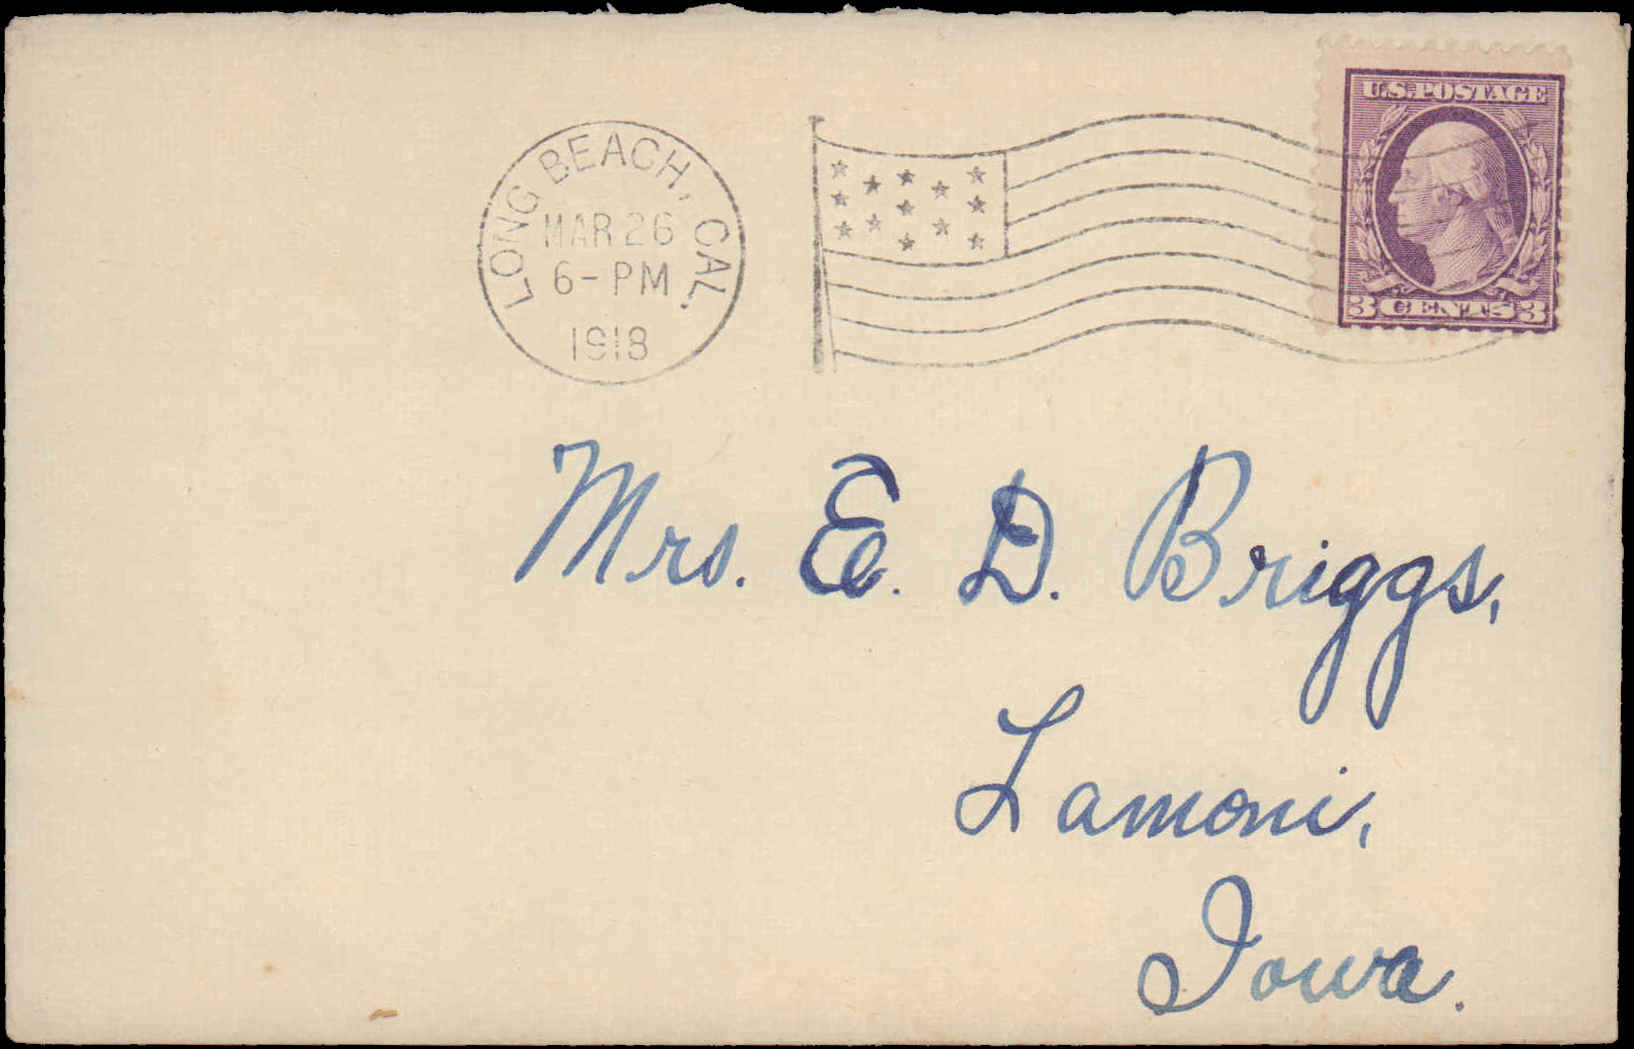 U.S. POSTAGE
LONG BEACH, CAL.
MAR 26
6-PM
1918
3 CENTS 3
Mrs. E. D. Briggs,
Lamoni,
Iowa.